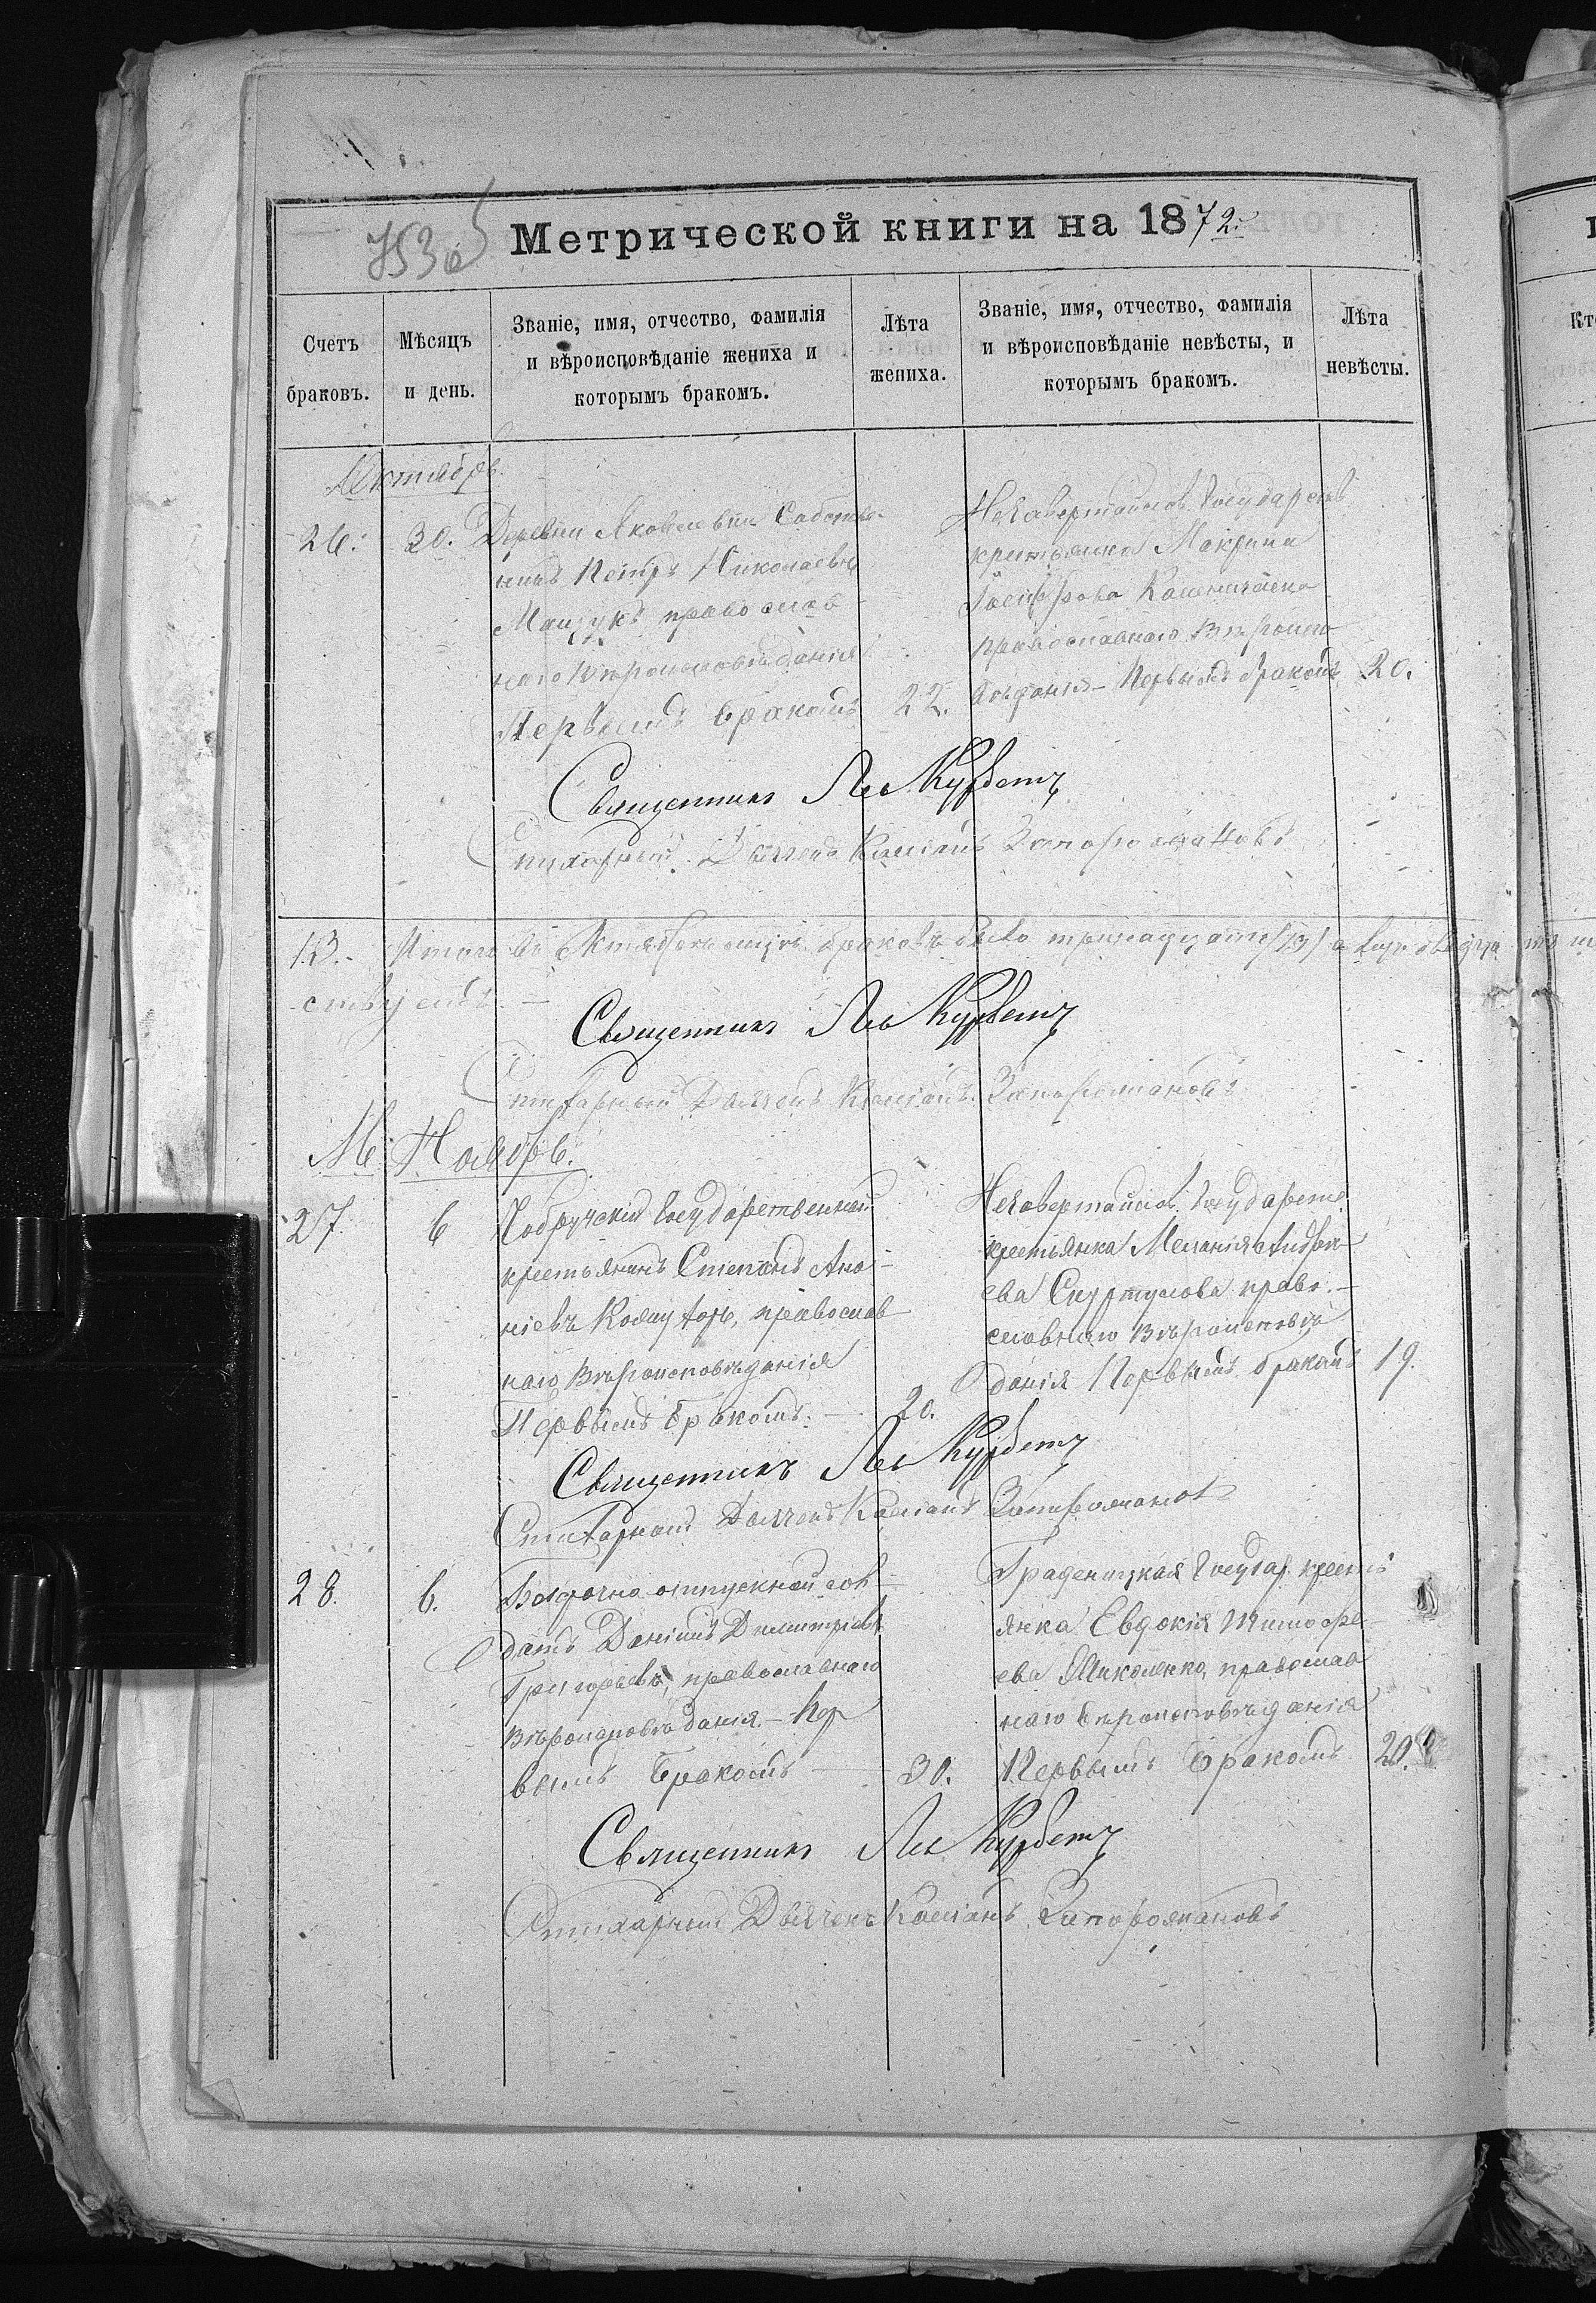 753 об
Метрической книги на 1872.
Счетъ браковъ.
Мѣсяцъ и день.
Званіе, имя, отчество, фамилія
и вѣроисповѣданіе жениха и
которымъ бракомъ.
Лѣта жениха.
Званіе, имя, отчество, фамилія
и вѣроисповѣданіе невѣсты, и
которымъ бракомъ.
Лѣта невѣсты.
Октябрь.
26. 30. Деревни Яковлевки Собствен
никъ Петръ Николаевъ
православ
наго вѣроисповѣданія
Первымъ бракомъ 22.
Государств
крестьянка Макрина
Іосифова
православнаго вѣроиспо
вѣданія – Первымъ бракомъ 20.
Священникъ Лев Курбетъ
Стихарный Дьячекъ Касіанъ Запорожановъ
13. Итого въ Октябрѣ мцѣ браковъ было тринадцать /13/
ствуемъ –
Священникъ Лев Курбетъ
Стихарный Дьячекъ Касіанъ Запорожановъ
М. Ноябрь.
27. 6 Государственный
крестьянинъ Степанъ Ана-
ніевъ православ
наго вѣроисповѣданія
Первымъ бракомъ. – 20.
Государств.
крестьянка Меланія Андре
ева Скуртулова право-
славнаго вѣроисповѣ
данія Первымъ бракомъ 19.
Священникъ Лев Курбетъ
Стихарный Дьячекъ Касіанъ Запорожановъ
28. 6. отпускной сол
датъ Даніилъ Димитріевъ
Григорьевъ, православнаго
вѣроисповѣданія. – Пер
вымъ бракомъ – 30.
Граденицкая Государ. кресть
янка Евдокія Тимофе
ева православ
наго вѣроисповѣданія
Первымъ бракомъ 20.
Священникъ Лев Курбетъ
Стихарный Дьячекъ Касіанъ Запорожановъ